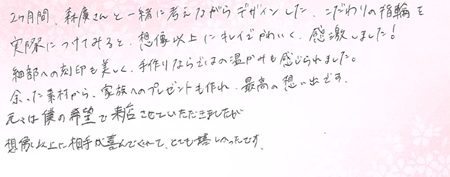 2ヶ月間、森廣さんと一緒に考えながらデザインした、こだわりの指輪を
実際につけてみると、想像以上にキレイでかわいく、感激しました！
細部への刻印も美しく、手作りならではの温かみも感じられました。
余った素材から、家族へのプレゼントも作れ、最高の想い出です。
元々は僕の希望で来店させていただきましたが
想像以上に相手が喜んでくれて、とても嬉しかったです。